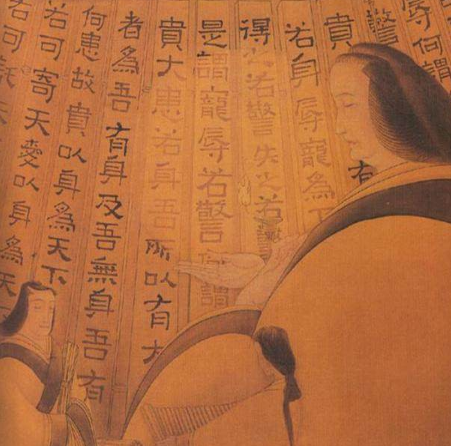 辱何謂
驚
貴有
若身辱寵為下
得之若警失之若警
是謂寵辱若警何謂
貴大患若身吾所以有大
者為吾有身及吾無身吾有
何患故貴以身為天下
若可寄天愛以身為天
若可